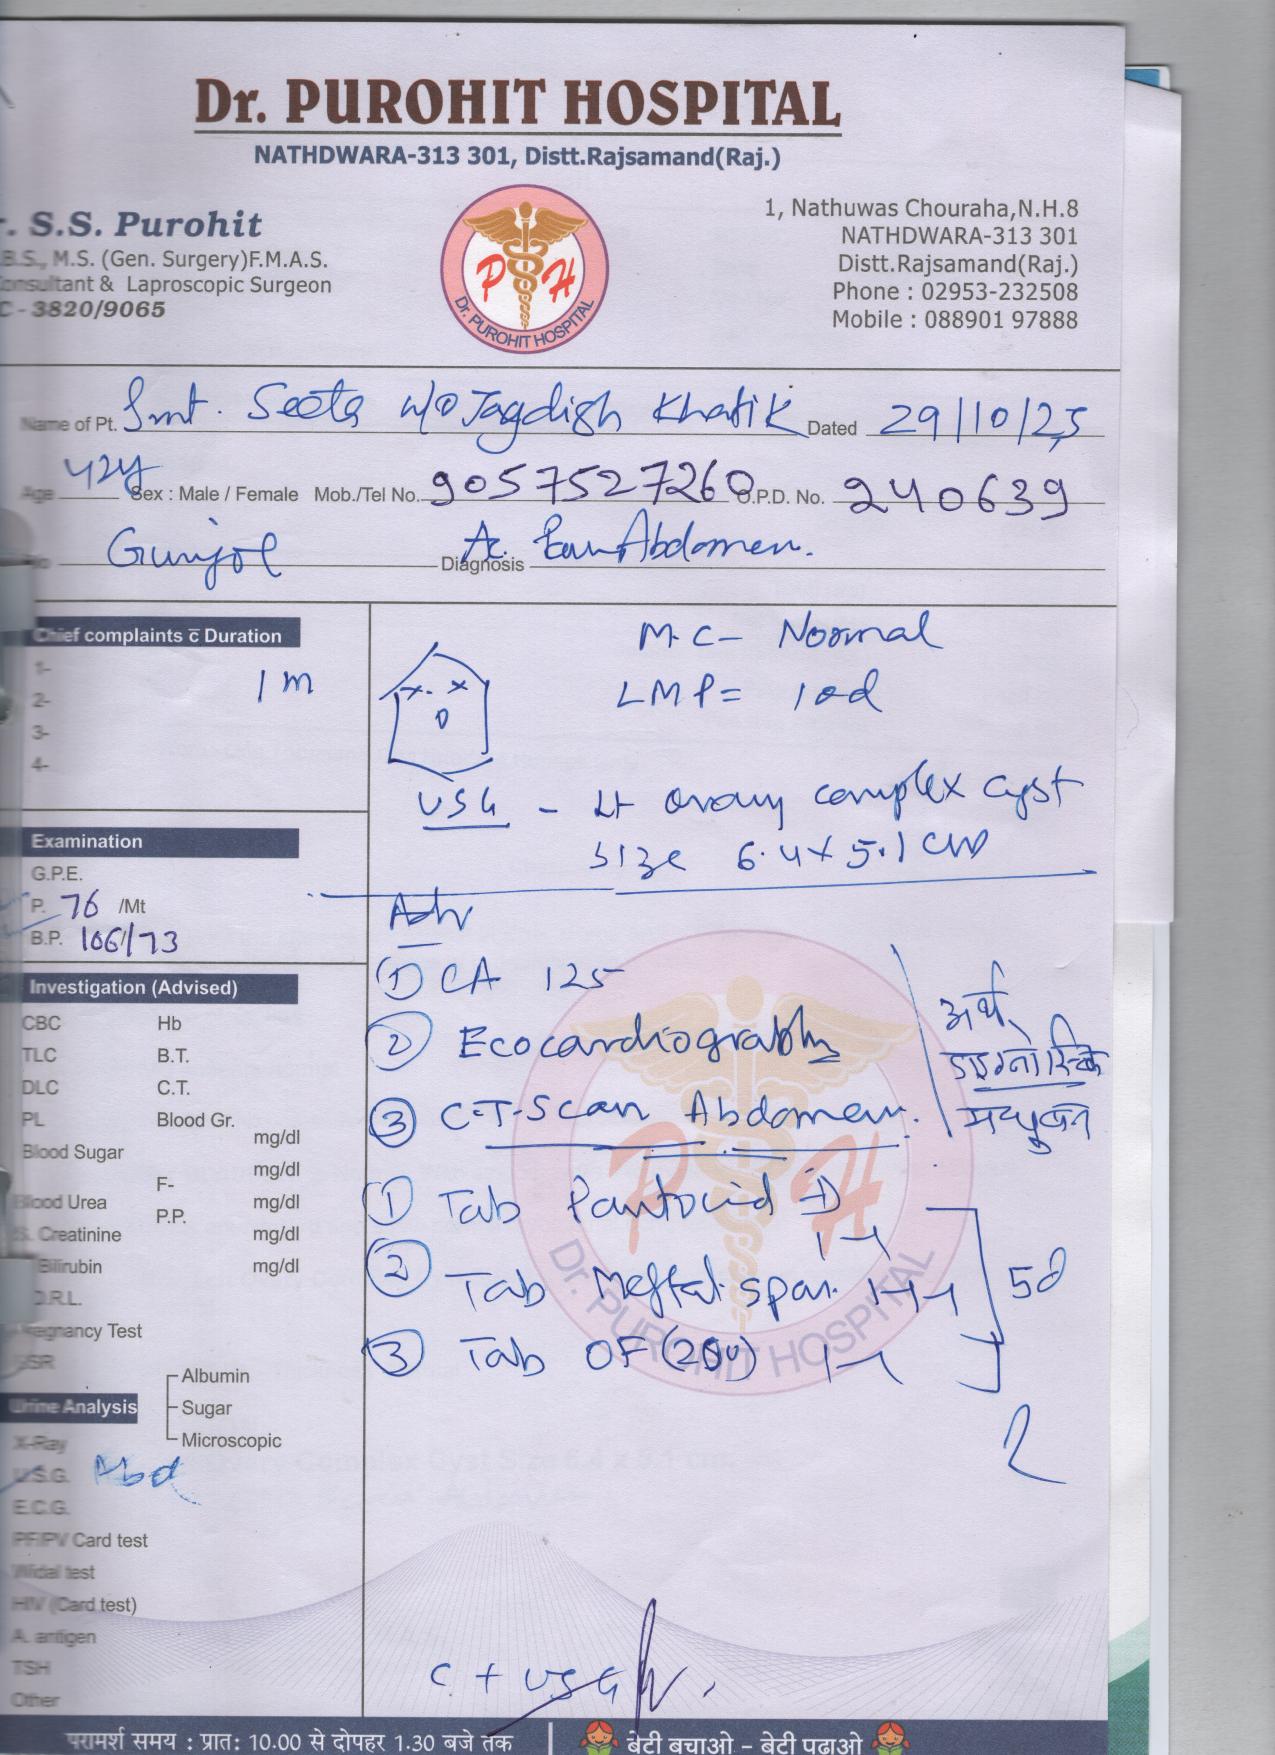 Dr. PUROHIT HOSPITAL
NATHDWARA-313 301, Distt.Rajsamand(Raj.)
r. S.S. Purohit
B.S., M.S. (Gen. Surgery)F.M.A.S.
Consultant & Laproscopic Surgeon
C - 3820/9065
P H
Dr. PUROHIT HOSPITAL
1, Nathuwas Chouraha,N.H.8
NATHDWARA-313 301
Distt.Rajsamand(Raj.)
Phone : 02953-232508
Mobile : 088901 97888
Name of Pt. Smt. Seeta w/o Jagdish Khatik Dated 29/10/25
Age 42y Sex : Male / Female Mob./Tel No. 9057527260 O.P.D. No. 240639
Gunjol Diagnosis Ac. Pain Abdomen.
Chief complaints c̄ Duration
1-
1 m
2-
3-
4-
M.C- Normal
LMP= 10d
USG - Lt ovary complex cyst
size 6.4x5.1 cm
Examination
G.P.E.
P. 76 /Mt
B.P. 106/73
Adv
① CA 125
② Ecocardiography
③ C.T-Scan Abdomen.
अर्थ
डाइग्नोस्टिक
① Tab Pantocid
1-1
② Tab Meftal-spas. 1-1-1
5d
③ Tab OF (200) 1-1
Investigation (Advised)
CBC Hb
TLC B.T.
DLC C.T.
PL Blood Gr.
Blood Sugar mg/dl
F- mg/dl
Blood Urea P.P. mg/dl
S. Creatinine mg/dl
Bilirubin mg/dl
D.R.L.
Pregnancy Test
ESR
Urine Analysis
Albumin
Sugar
Microscopic
X-Ray
U.S.G. Abd
E.C.G.
PF/PV Card test
Widal test
HIV (Card test)
A. antigen
TSH
Other
P H
Dr. PUROHIT HOSPITAL
C + USG
परामर्श समय : प्रातः 10.00 से दोपहर 1.30 बजे तक
बेटी बचाओ - बेटी पढाओ